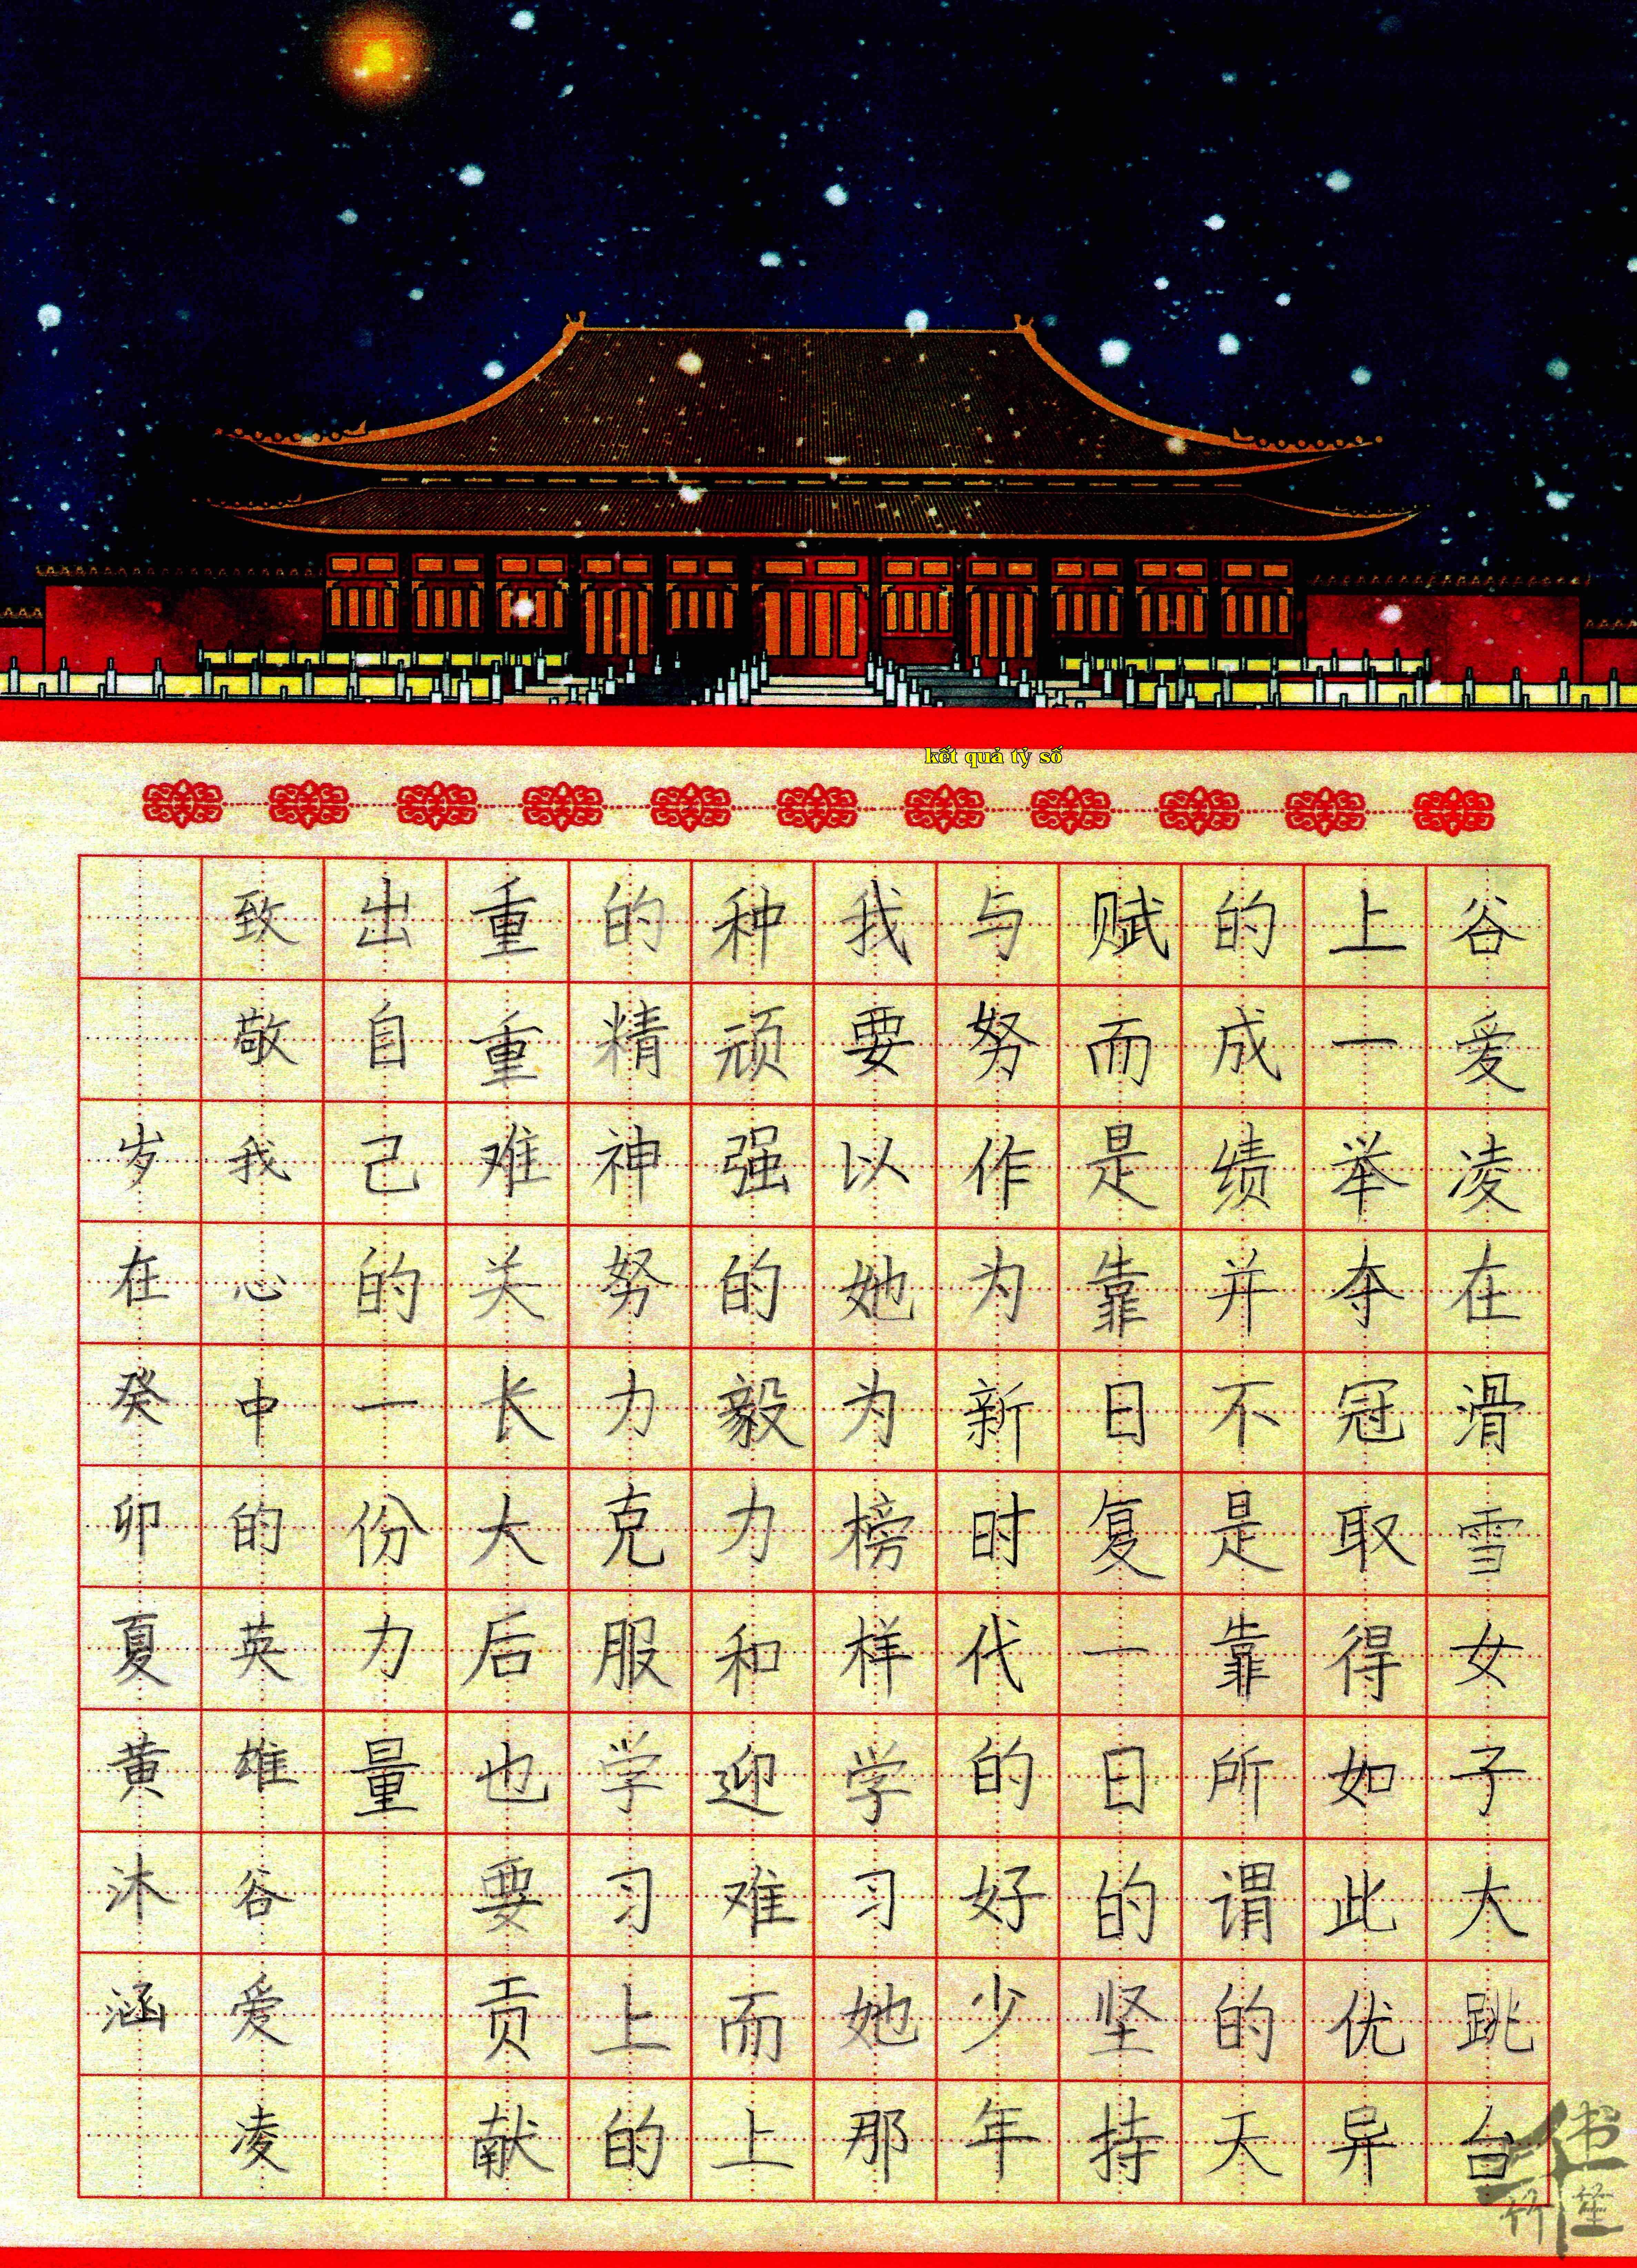 kết quả tỷ số
谷爱凌在滑雪女子大跳台
上一举夺冠取得如此优异
的成绩并不是靠所谓的天
赋而是靠日复一日的坚持
与努作为新时代的好少年
我要以她为榜样学习她那
种顽强的毅力和迎难而上
的精神努力克服学习上的
重重难关长大后也要贡献
出自己的一份力量
致敬我心中的英雄谷爱凌
岁在癸卯夏黄沐涵